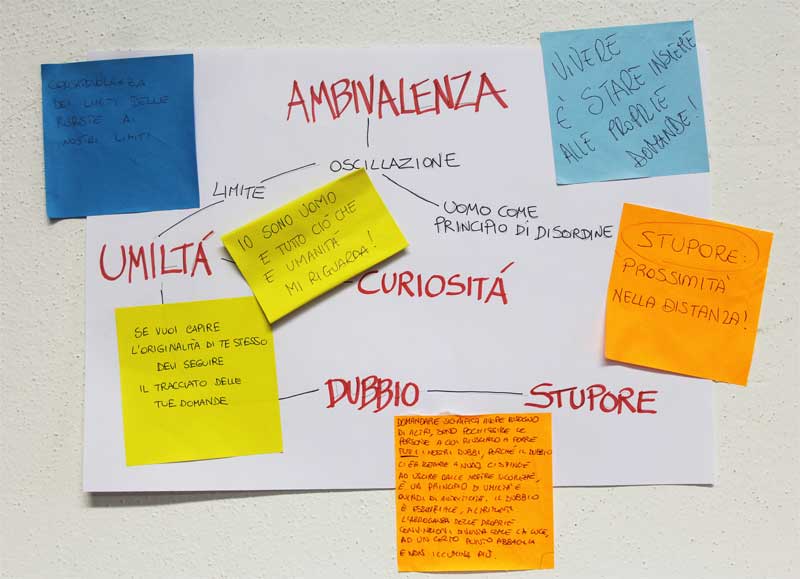 CONSAPEVOLEZZA
DEI LIMITI DELLE
RISPOSTE AI
NOSTRI LIMITI
AMBIVALENZA
VIVERE
E' STARE INSIEME
ALLE PROPRIE
DOMANDE!
OSCILLAZIONE
LIMITE
UOMO COME
PRINCIPIO DI DISORDINE
IO SONO UOMO
E TUTTO CIÓ CHE
E' UMANITÀ
MI RIGUARDA!
UMILTÁ
CURIOSITÁ
STUPORE:
PROSSIMITÀ
NELLA DISTANZA!
SE VUOI CAPIRE
L'ORIGINALITÀ DI TE STESSO
DEVI SEGUIRE
IL TRACCIATO DELLE
TUE DOMANDE
DUBBIO
STUPORE
DOMANDARE SIGNIFICA AVERE BISOGNO
DI ALTRI, SONO POCHISSIME LE
PERSONE A CUI RIUSCIAMO A PORRE
TUTTI I NOSTRI DUBBI, PERCHÉ IL DUBBIO
CI SPINGE
AD USCIRE DALLE NOSTRE SICUREZZE,
È UN PRINCIPIO DI UMILTÀ E
QUINDI DI AUTENTICITÀ. IL DUBBIO
È ESSENZIALE, ALTRIMENTI
L'ARROGANZA DELLE PROPRIE
CONVINZIONI DIVENTA COME LA LUCE,
AD UN CERTO PUNTO ABBAGLIA
E NON ILLUMINA PIÙ.